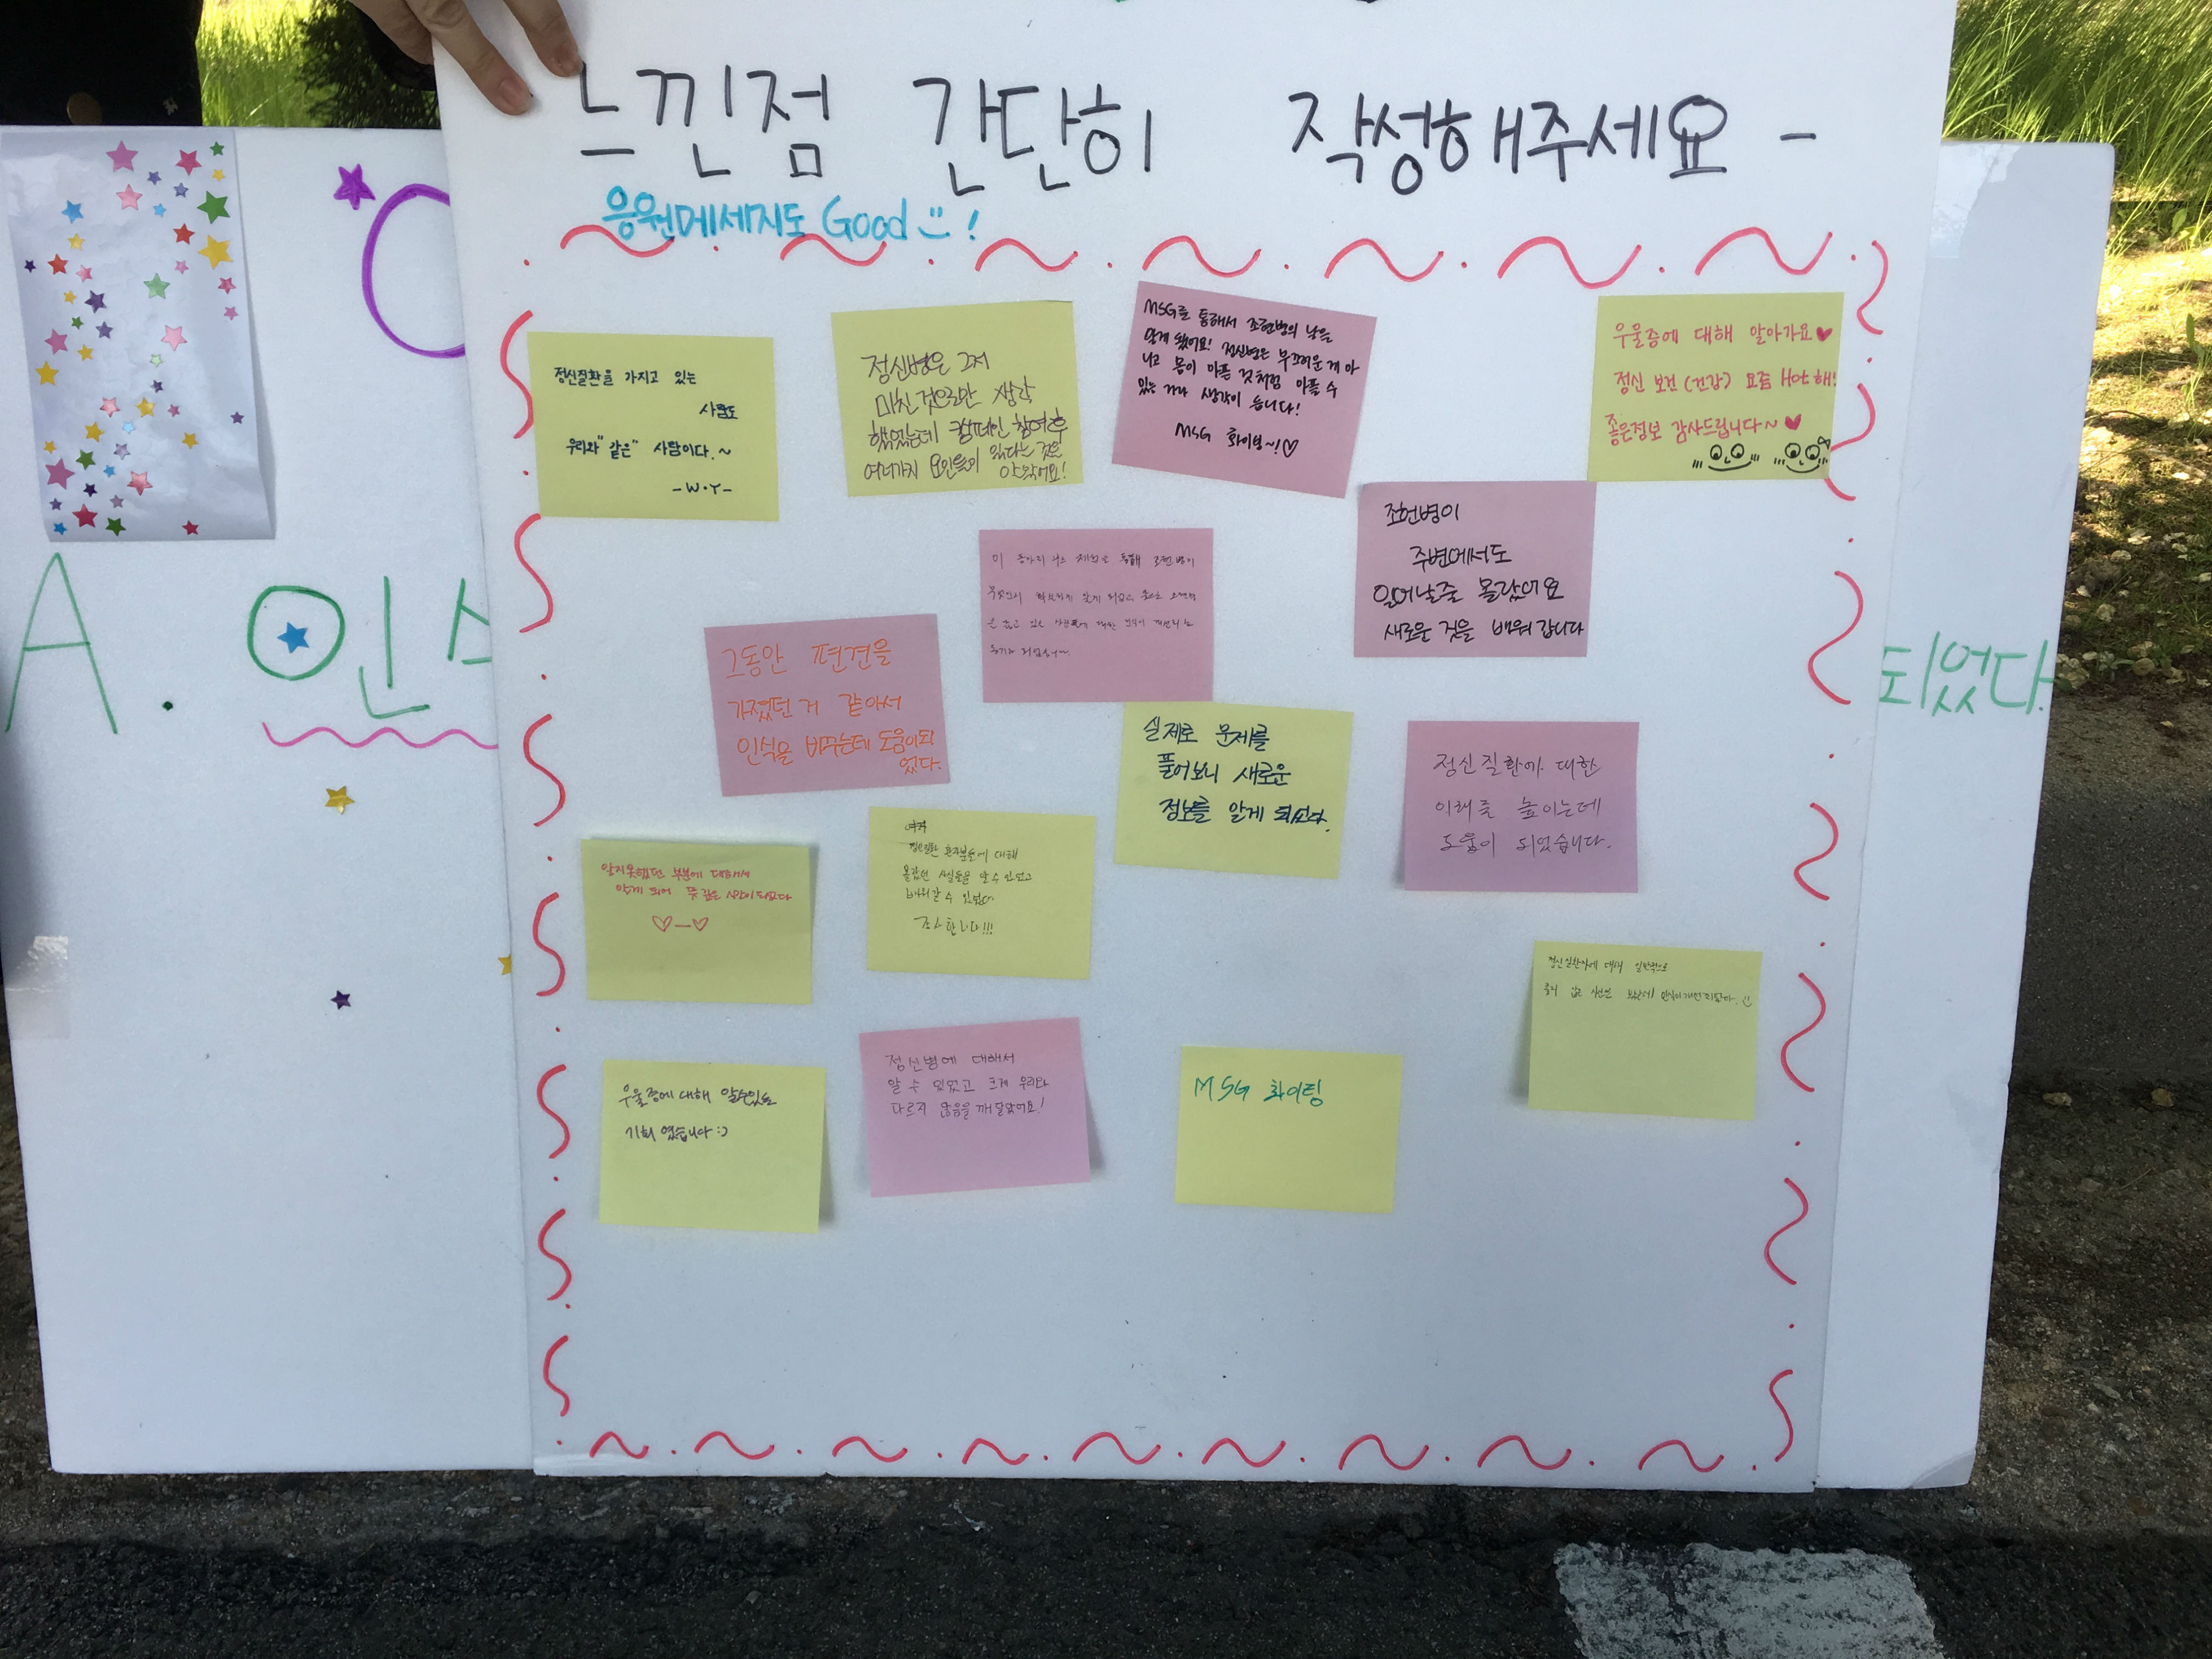 느낀점 간단히 작성해주세요 -
응원메세지도 Good !
정신질환을 가지고 있는
사람도
우리와 "같은" 사람이다.~
-W·Y-
정신병은 그저
미친것으로만 생각
했었는데 캠페인 참여후
여러가지 요인들이 있다는 것을
알았어요!
MSG를 통해서 조현병의 날을
알게 됐어요! 정신병은 부끄러운게 아
니고 몸이 아픈 것처럼 아플 수
있는 거라 생각이 듭니다!
MSG 화이팅~!♡
우울증에 대해 알아가요♥
정신 보건(건강) 요즘 Hot해!
좋은정보 감사드립니다~♥
조현병이
주변에서도
일어날줄 몰랐어요
새로운 것을 배워갑니다
이 동아리 부스 체험을 통해 조현병이
무엇인지 확실하게 알게 되었고
그동안 편견을
가졌던 거 같아서
인식을 바꾸는데 도움이되
었다.
실제로 문제를
풀어보니 새로운
정보를 알게 되었다.
정신질환에 대한
이해를 높이는데
도움이 되었습니다.
알지못했던 부분에 대해서
알게 되어 뜻 깊은 시간이되었다
♡-♡
정신질환 환자분들에 대해
몰랐던 사실들을 알 수 있었고
배워갈 수 있었다
감사합니다!!!
정신질환자에 대해 일반적으로
좋지 않은 시선만 인식이 개선되었다. :)
우울증에 대해 알수있는
기회 였습니다 :)
정신병에 대해서
알 수 있었고 크게 우리와
다르지 않음을 깨달았어요!
MSG 화이팅
A. 인
되었다.